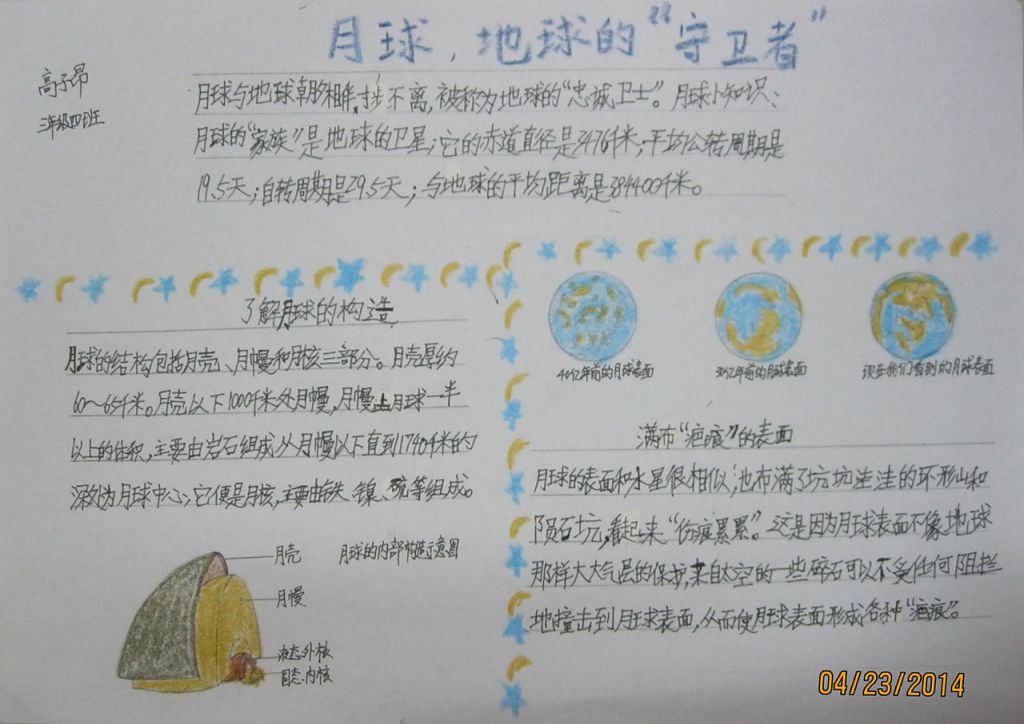 月球，地球的“守卫者”
高子昂
三年级四班
月球与地球朝夕相伴，寸步不离，被称为地球的“忠诚卫士”。月球小知识：
月球的“家族”是地球的卫星；它的赤道直径是3476千米；平均公转周期是
19.5天；自转周期是29.5天；与地球的平均距离是384400千米。
了解月球的构造
月球的结构包括月壳、月幔和月核三部分。月壳厚约
60～65千米。月壳以下1000千米为月幔，月幔占月球一半
以上的体积，主要由岩石组成。从月幔以下直到1740千米的
深处为月球中心；它便是月核，主要由铁、镍、硫等组成。
月球的内部构造示意图
月壳
月幔
液态外核
固态内核
40亿年前的月球表面
30亿年前的月球表面
现在我们看到的月球表面
满布“疤痕”的表面
月球的表面和水星很相似，也布满了坑坑洼洼的环形山和
陨石坑，看起来“伤痕累累”。这是因为月球表面不像地球
那样大大气层的保护，来自太空的一些碎石可以不受任何阻拦
地撞击到月球表面，从而使月球表面形成各种“疤痕”。
04/23/2014